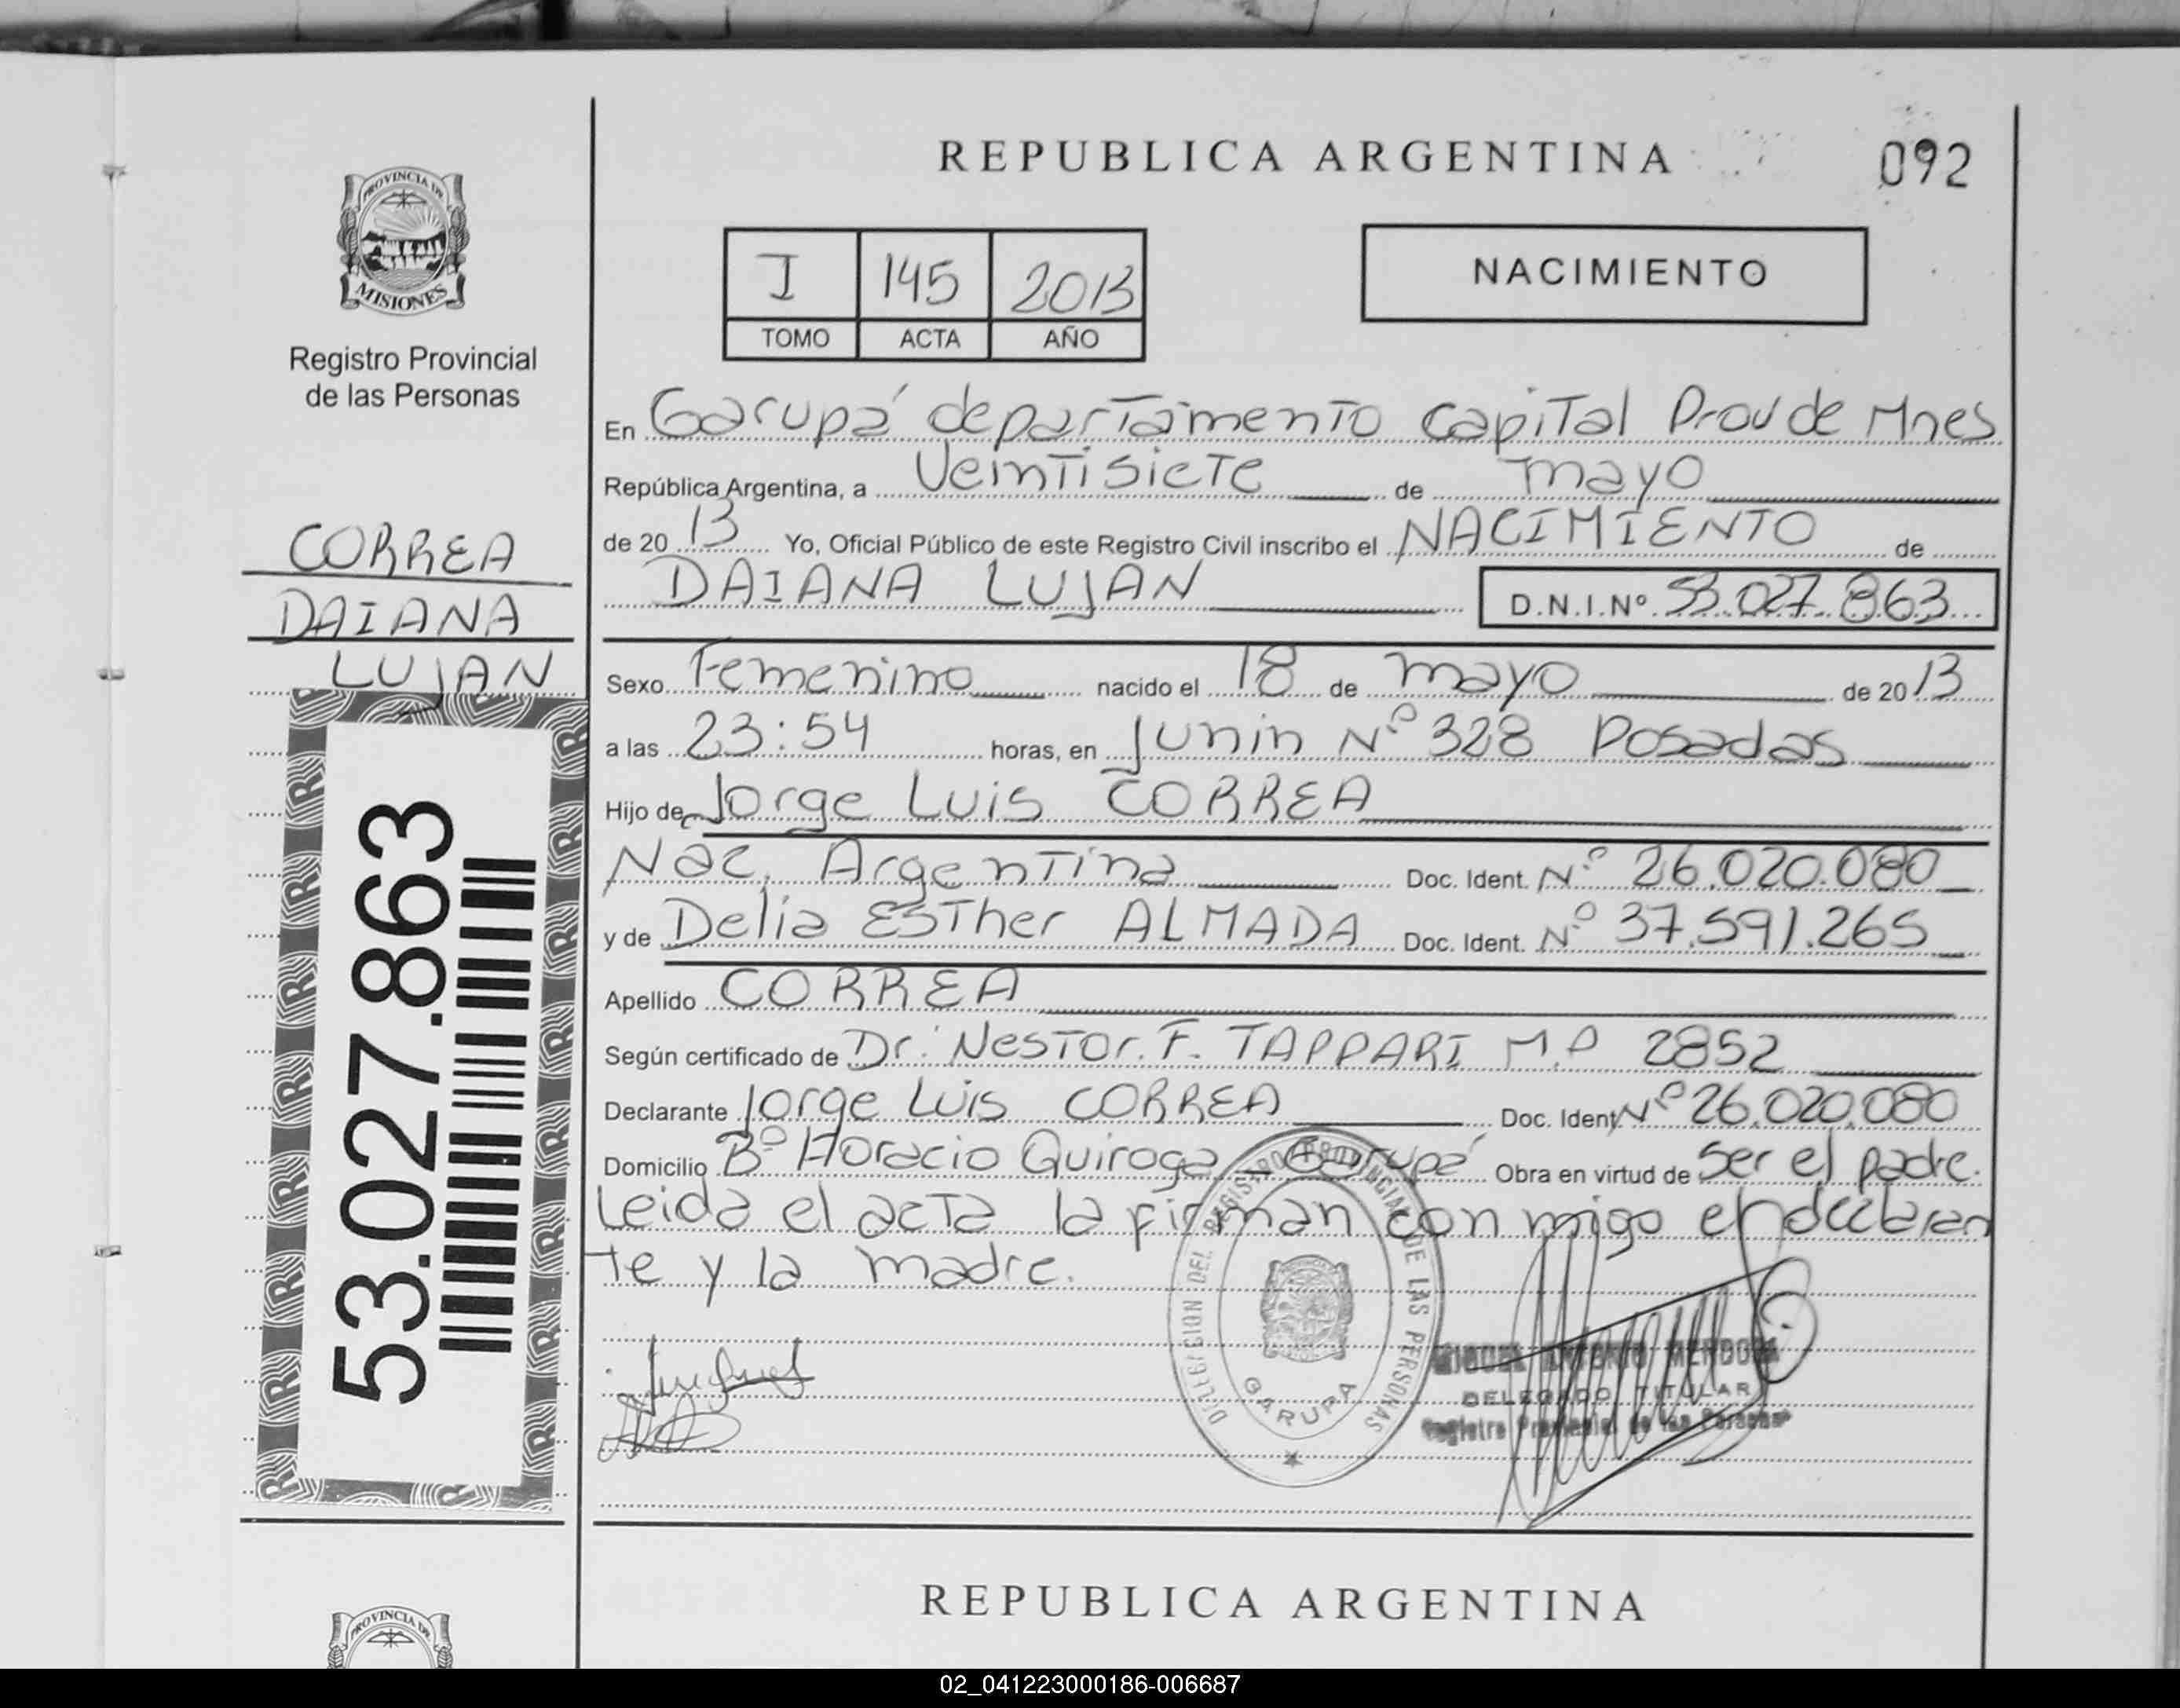 REPUBLICA ARGENTINA
092
PROVINCIA DE
MISIONES
Registro Provincial
de las Personas
CORREA
DAIANA
LUJAN
53.027.863
I 145 2013
TOMO ACTA AÑO
NACIMIENTO
En Garupá departamento Capital Prov de Mnes
República Argentina, a Veintisiete de mayo
de 2013 Yo, Oficial Público de este Registro Civil inscribo el NACIMIENTO de
DAIANA LUJAN D.N.I.Nº 53.027.863
Sexo Femenino nacido el 18 de mayo de 2013
a las 23:54 horas, en Junin Nº 328 Posadas
Hijo de Jorge Luis CORREA
Nac. Argentina Doc. Ident. Nº 26.020.080
y de Delia Esther ALMADA Doc. Ident. Nº 37.591.265
Apellido CORREA
Según certificado de Dr. Nestor. F. TAPPARI M.P 2852
Declarante Jorge Luis CORREA Doc. Ident Nº 26.020.080
Domicilio Bº Horacio Quiroga Garupá Obra en virtud de ser el padre.
Leida el acta la firman con migo el declaran
te y la madre.
DELEGACION DEL REGISTRO PROVINCIAL DE LAS PERSONAS
GARUPA
MIGUEL ANTONIO MENDOZA
DELEGADO TITULAR
Registro Provincial de las Personas
REPUBLICA ARGENTINA
PROVINCIA DE
02_041223000186-006687